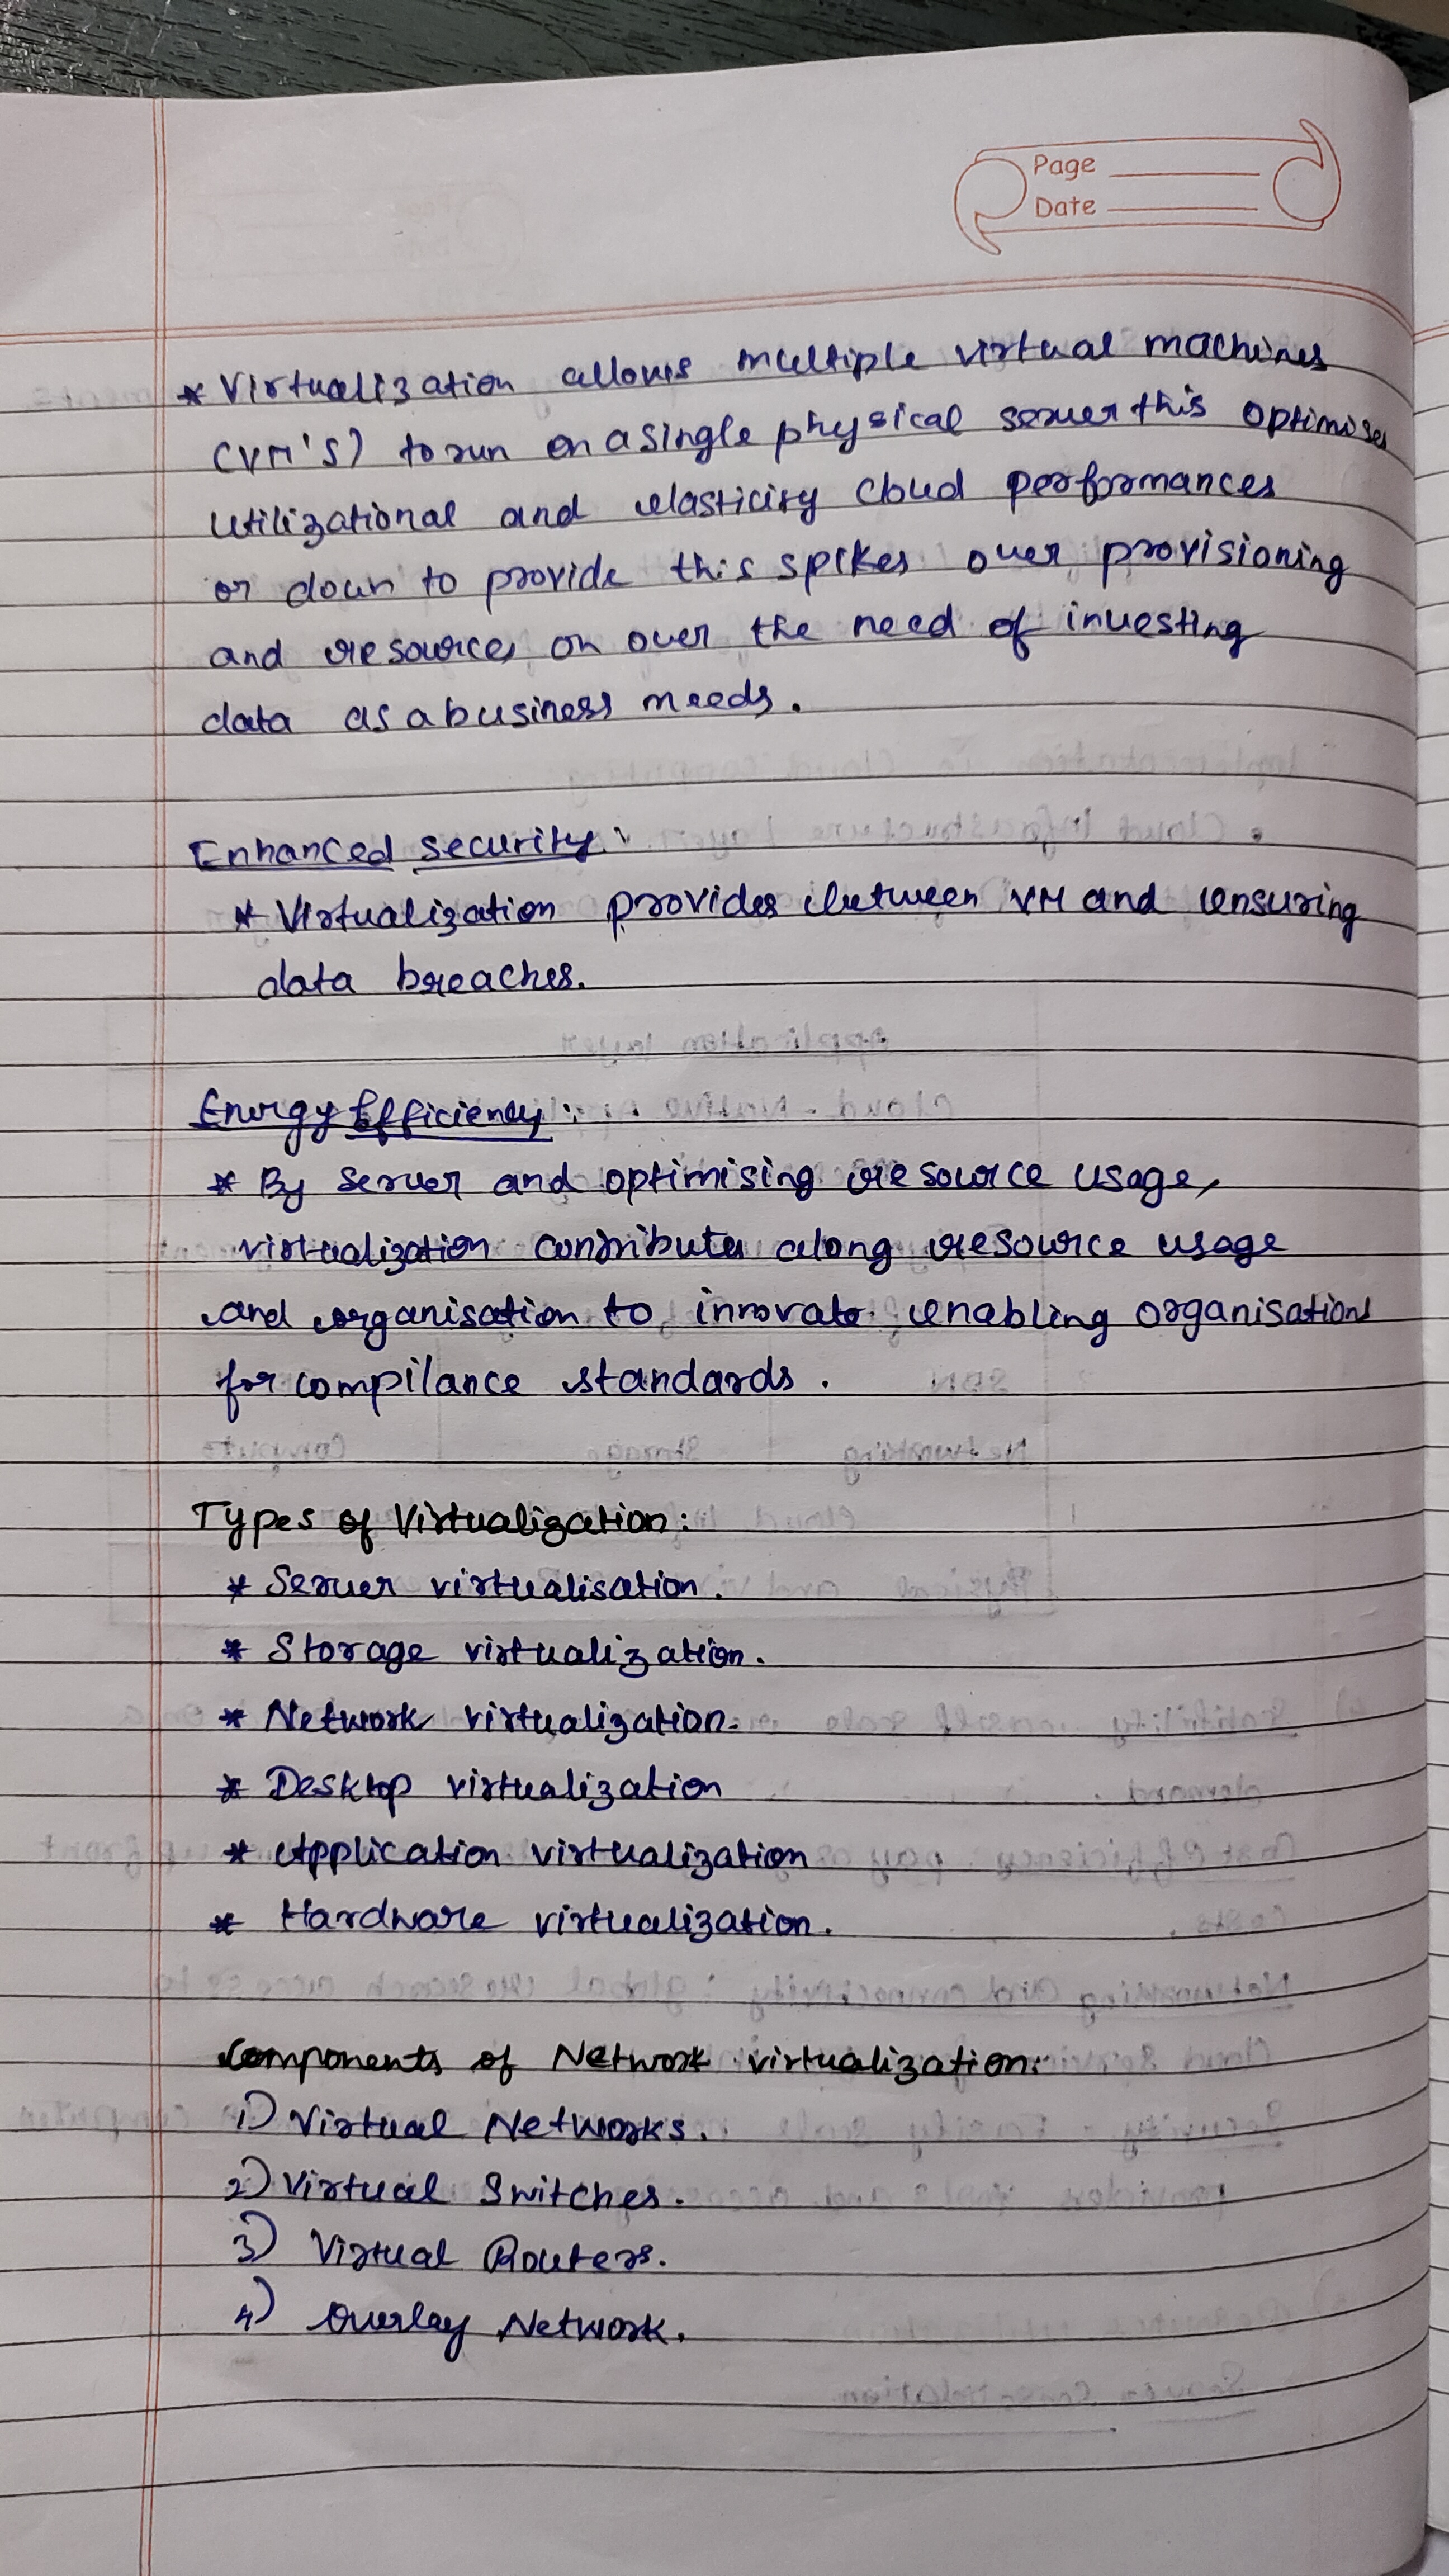 Page
Date
* Virtualization allows multiple virtual machines
(VM'S) to run on a single physical server this optimises
utilizational and elasticity cloud performances
or down to provide this spikes over provisioning
and resources on over the need of investing
data as a business needs.
Enhanced security:
* Virtualization provides between VM and ensuring
data breaches.
Energy Efficiency:
* By server and optimising resource usage,
virtualization contributes along resource usage
and organisation to innovate enabling organisations
for compilance standards.
Types of Virtualization:
* Server virtualisation.
* Storage virtualization.
* Network virtualization.
* Desktop virtualization
* Application virtualization
* Hardware virtualization.
Components of Network virtualization:
1) Virtual Networks.
2) Virtual Switches.
3) Virtual Routers.
4) Overlay Network.